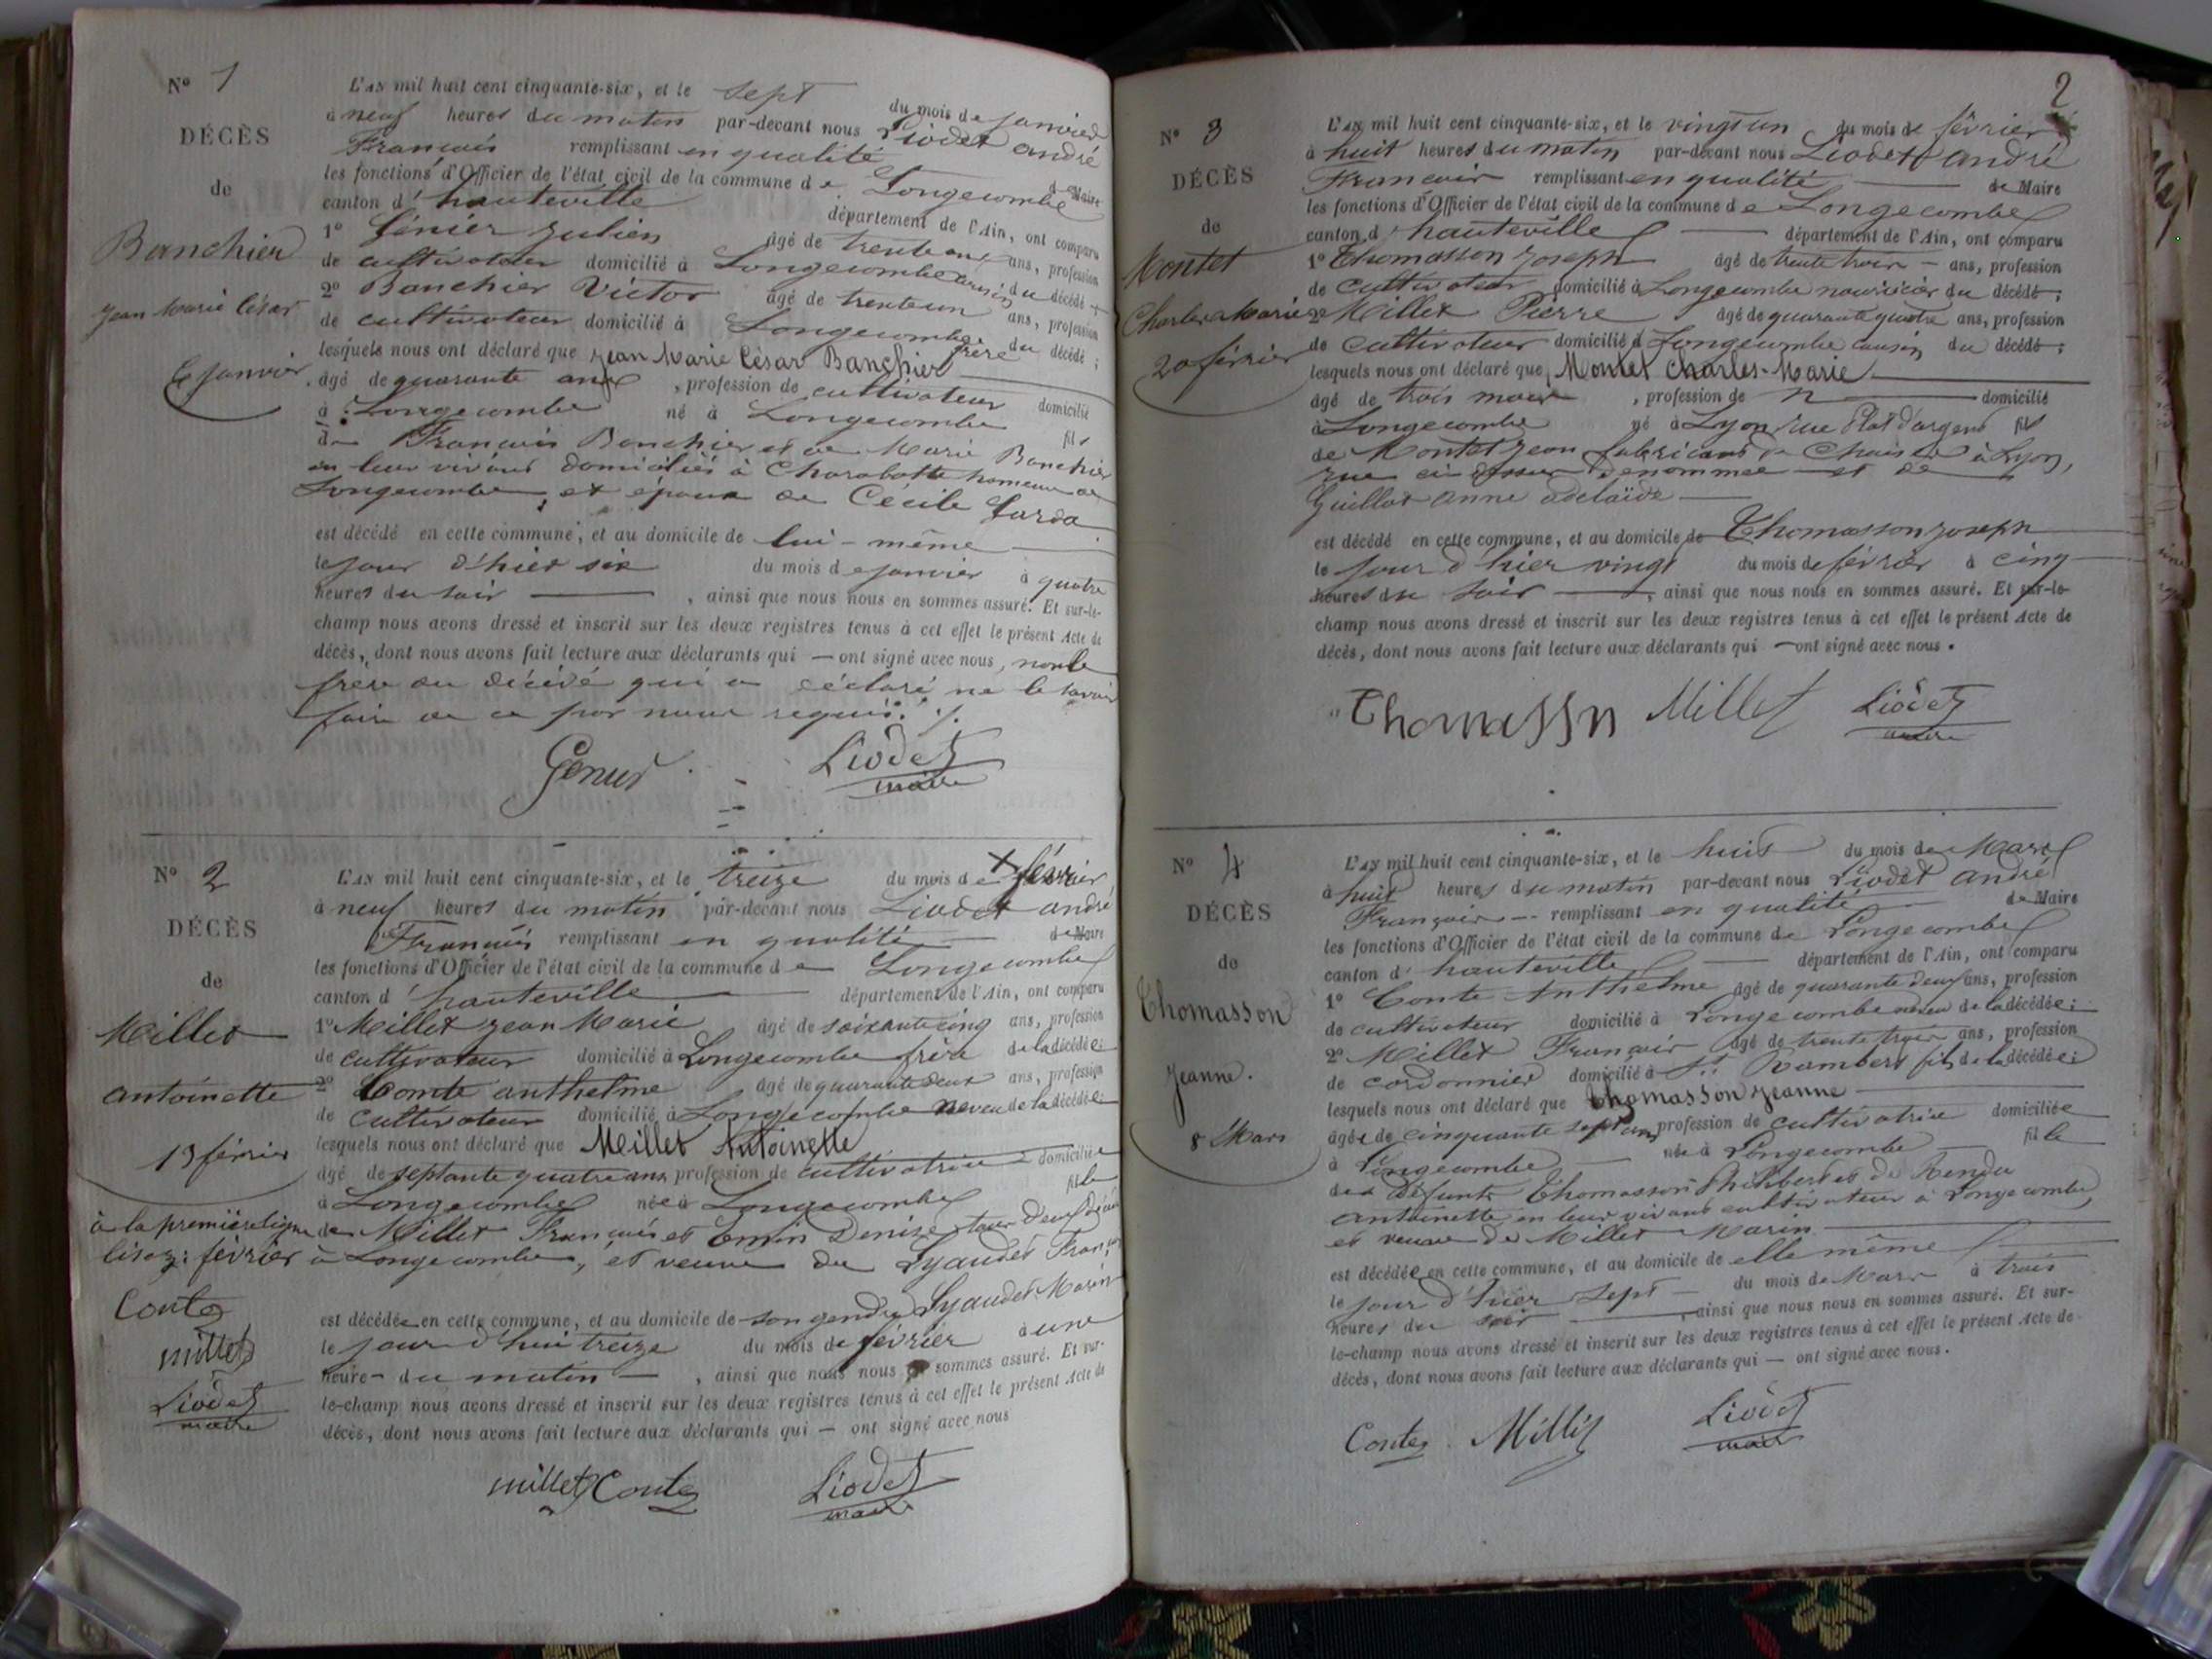 N° 1
DÉCÈS
de
Banchier
Jean Marie César
6 janvier
L'AN mil huit cent cinquante-six, et le sept du mois de janvier
à neuf heures du matin par-devant nous Liodet andré
François remplissant en qualité de Maire
les fonctions d'Officier de l'état civil de la commune de Longecombe
canton d'hauteville département de l'Ain, ont comparu
1° Génier Julien âgé de trente ans, profession
de cultivateur domicilié à Longecombe cousin du décédé
2° Banchier Victor âgé de trente un ans, profession
de cultivateur domicilié à Longecombe frère du décédé ;
lesquels nous ont déclaré que Jean Marie César Banchier
âgé de quarante ans, profession de cultivateur domicilié
à Longecombe né à Longecombe fils
de François Banchier et de Marie Banchier
en leur vivant domiciliés à Charabotte hameau de
Longecombe, et époux de Cécile Jarda
est décédé en cette commune, et au domicile de lui-même
le jour d'hier six du mois de janvier à quatre
heures du soir, ainsi que nous nous en sommes assuré. Et sur-le-
champ nous avons dressé et inscrit sur les deux registres tenus à cet effet le présent Acte de
décès, dont nous avons fait lecture aux déclarants qui — ont signé avec nous, non le
frère du décédé qui a déclaré ne le savoir
faire de ce par nous requis ./.
Liodet
maire
N° 2
DÉCÈS
de
Millet
antoinette
13 février
à la première ligne
lisez: février
Conte
millet
Liodet
maire
L'AN mil huit cent cinquante-six, et le treize du mois de + février
à neuf heures du matin par-devant nous Liodet andré
François remplissant en qualité de Maire
les fonctions d'Officier de l'état civil de la commune de Longecombe
canton d'hauteville département de l'Ain, ont comparu
1° Millet Jean Marie âgé de soixante cinq ans, profession
de cultivateur domicilié à Longecombe frère de la décédée:
2° Comte anthelme âgé de quarante deux ans, profession
de cultivateur domicilié à Longecombe neveu de la décédée:
lesquels nous ont déclaré que Millet Antoinette
âgé de septante quatre ans profession de cultivatrice domiciliée
à Longecombe née à Longecombe fille
de Millet François et Emin Denise tous deux décédés
à Longecombe, et veuve de Lyaudet François
est décédée en cette commune, et au domicile de son gendre Lyaudet Marin
le jour d'hui treize du mois de février à une
heure du matin, ainsi que nous nous en sommes assuré. Et sur-
le-champ nous avons dressé et inscrit sur les deux registres tenus à cet effet le présent Acte de
décès, dont nous avons fait lecture aux déclarants qui — ont signé avec nous
millet Conte Liodet
maire
2
N° 3
DÉCÈS
de
Montet
Charles Marie
20 février
L'AN mil huit cent cinquante-six, et le vingt un du mois de février
à huit heures du matin par-devant nous Liodet andré
François remplissant en qualité de Maire
les fonctions d'Officier de l'état civil de la commune de Longecombe
canton d'hauteville département de l'Ain, ont comparu
1° Thomasson Joseph âgé de trente trois ans, profession
de cultivateur domicilié à Longecombe nourricier du décédé ;
2° Millet Pierre âgé de quarante quatre ans, profession
de cultivateur domicilié à Longecombe cousin du décédé ;
lesquels nous ont déclaré que Montet Charles-Marie
âgé de trois mois, profession de domicilié
à Longecombe né à Lyon rue Plat d'argent fils
de Montet Jean fabricant de Chaises à Lyon,
rue ci dessus dénommée et de
Guillot anne adelaïde
est décédé en cette commune, et au domicile de Thomasson Joseph
le jour d'hier vingt du mois de février à cinq
heures du soir, ainsi que nous nous en sommes assuré. Et sur-le-
champ nous avons dressé et inscrit sur les deux registres tenus à cet effet le présent Acte de
décès, dont nous avons fait lecture aux déclarants qui — ont signé avec nous.
Thomassn Millet Liodet
maire
N° 4
DÉCÈS
de
Thomasson
Jeanne.
8 Mars
L'AN mil huit cent cinquante-six, et le huit du mois de Mars
à huit heures du matin par-devant nous Liodet andré
François remplissant en qualité de Maire
les fonctions d'Officier de l'état civil de la commune de Longecombe
canton d'hauteville département de l'Ain, ont comparu
1° Conte Anthelme âgé de quarante deux ans, profession
de cultivateur domicilié à Longecombe neveu de la décédée:
2° Millet François âgé de trente trois ans, profession
de cordonnier domicilié à St Rambert fils de la décédée:
lesquels nous ont déclaré que thomasson Jeanne
âgée de cinquante sept ans profession de cultivatrice domiciliée
à Longecombe née à Longecombe fille
des défunts Thomasson Philibert et de Rendu
antoinette, en leur vivant cultivateur à Longecombe,
et veuve de Millet Marin
est décédée en cette commune, et au domicile de elle même
le jour d'hier sept du mois de Mars à trois
heures du soir, ainsi que nous nous en sommes assuré. Et sur-
le-champ nous avons dressé et inscrit sur les deux registres tenus à cet effet le présent Acte de
décès, dont nous avons fait lecture aux déclarants qui — ont signé avec nous.
Conte Millet Liodet
maire